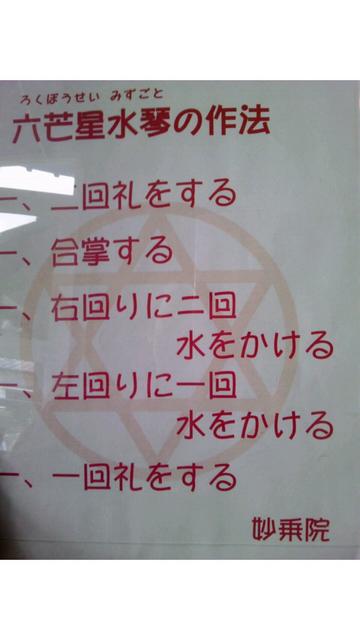 ろくぼうせい みずごと
六芒星水琴の作法
一、二回礼をする
一、合掌する
一、右回りに二回
水をかける
一、左回りに一回
水をかける
一、一回礼をする
妙乗院